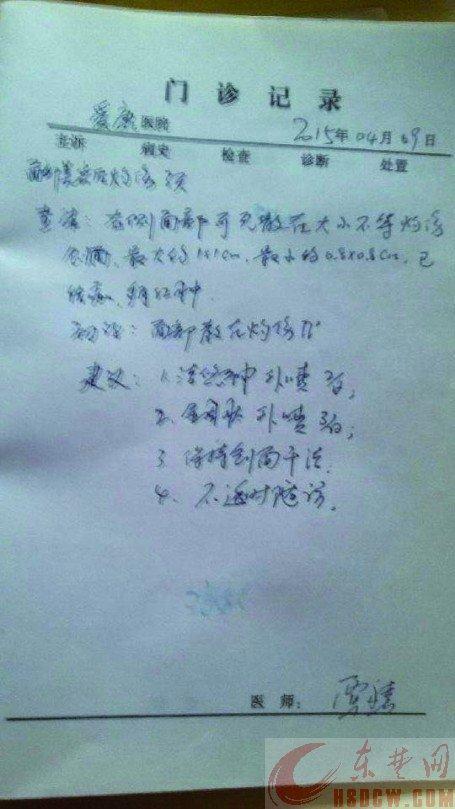 门诊记录
爱康医院 2015年04月09日
主诉 病史 检查 诊断 处置
面部美容后灼伤
查体：右侧面部可见散在大小不等灼伤
创面，最大约1x1cm，最小约0.8x0.8cm，已
结痂，红肿
初诊：面部散在灼伤
建议：1. 外喷 3/日；
2. 外喷 3/日；
3 保持创面干洁
4. 不适时随诊.
医师：
东楚网
HSDCW.COM